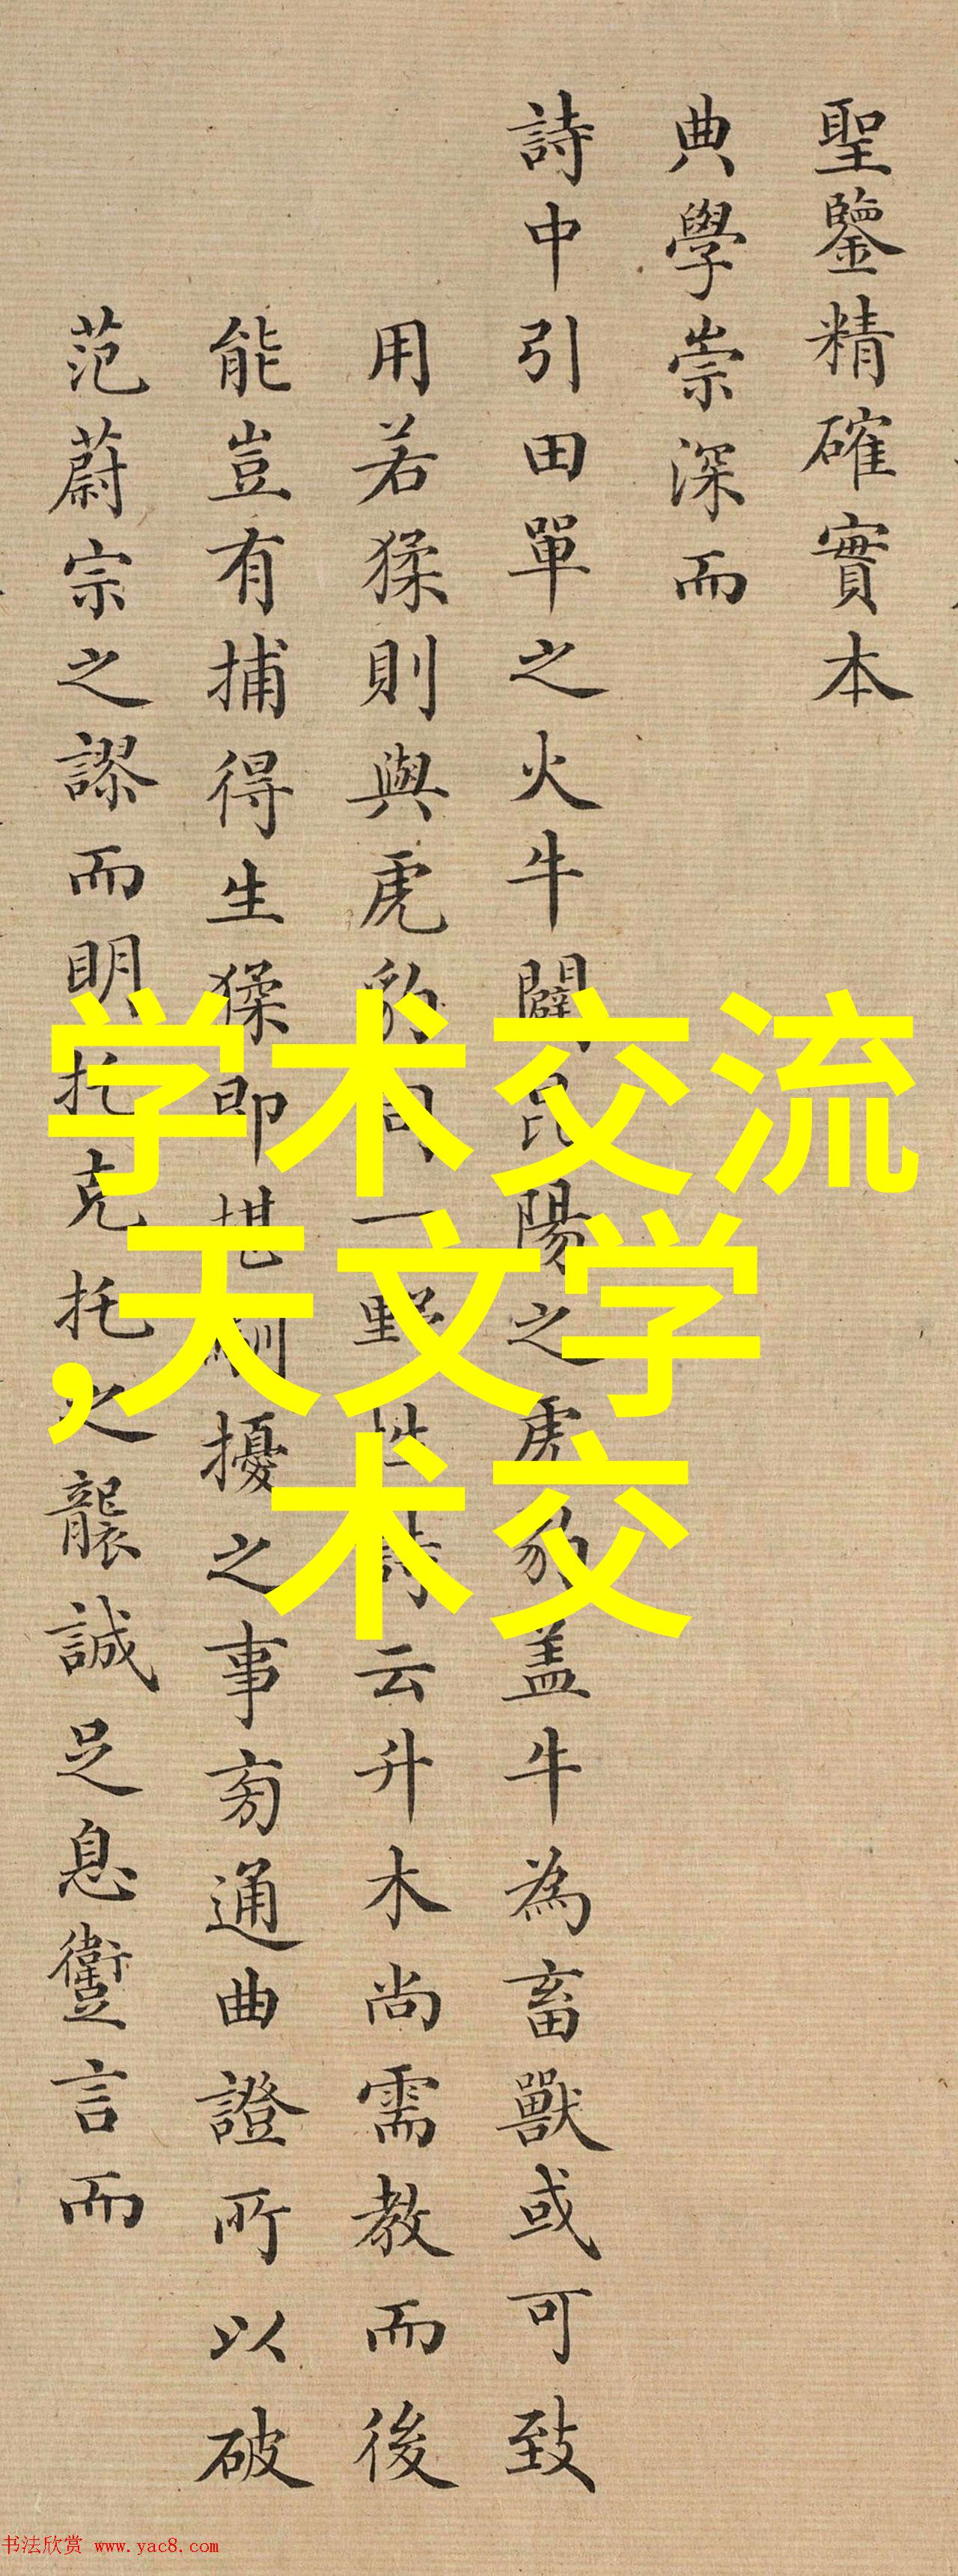 聖鑒精確實本
典學崇深而
詩中引田單之火牛闢昆陽之虎豹盖牛為畜獸或可致
用若猱則與虎豹同一野性詩云升木尚需教而後
能豈有捕得生猱即堪馴擾之事旁通曲證所以破
范蔚宗之謬而明托克托之襲誠足息躗言而
学术交流
,天文学
术交
书法欣赏 www.yac8.com